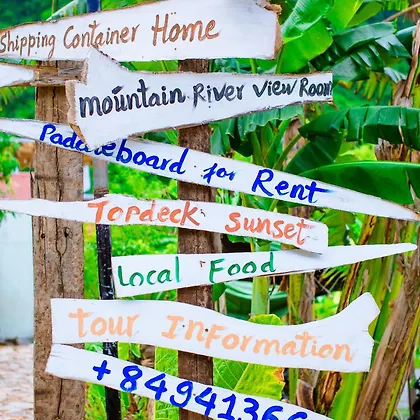 Shipping Container Home
mountain River view Room
Paddleboard for Rent
Topdeck Sunset
Local Food
Tour InFormation
+84941366